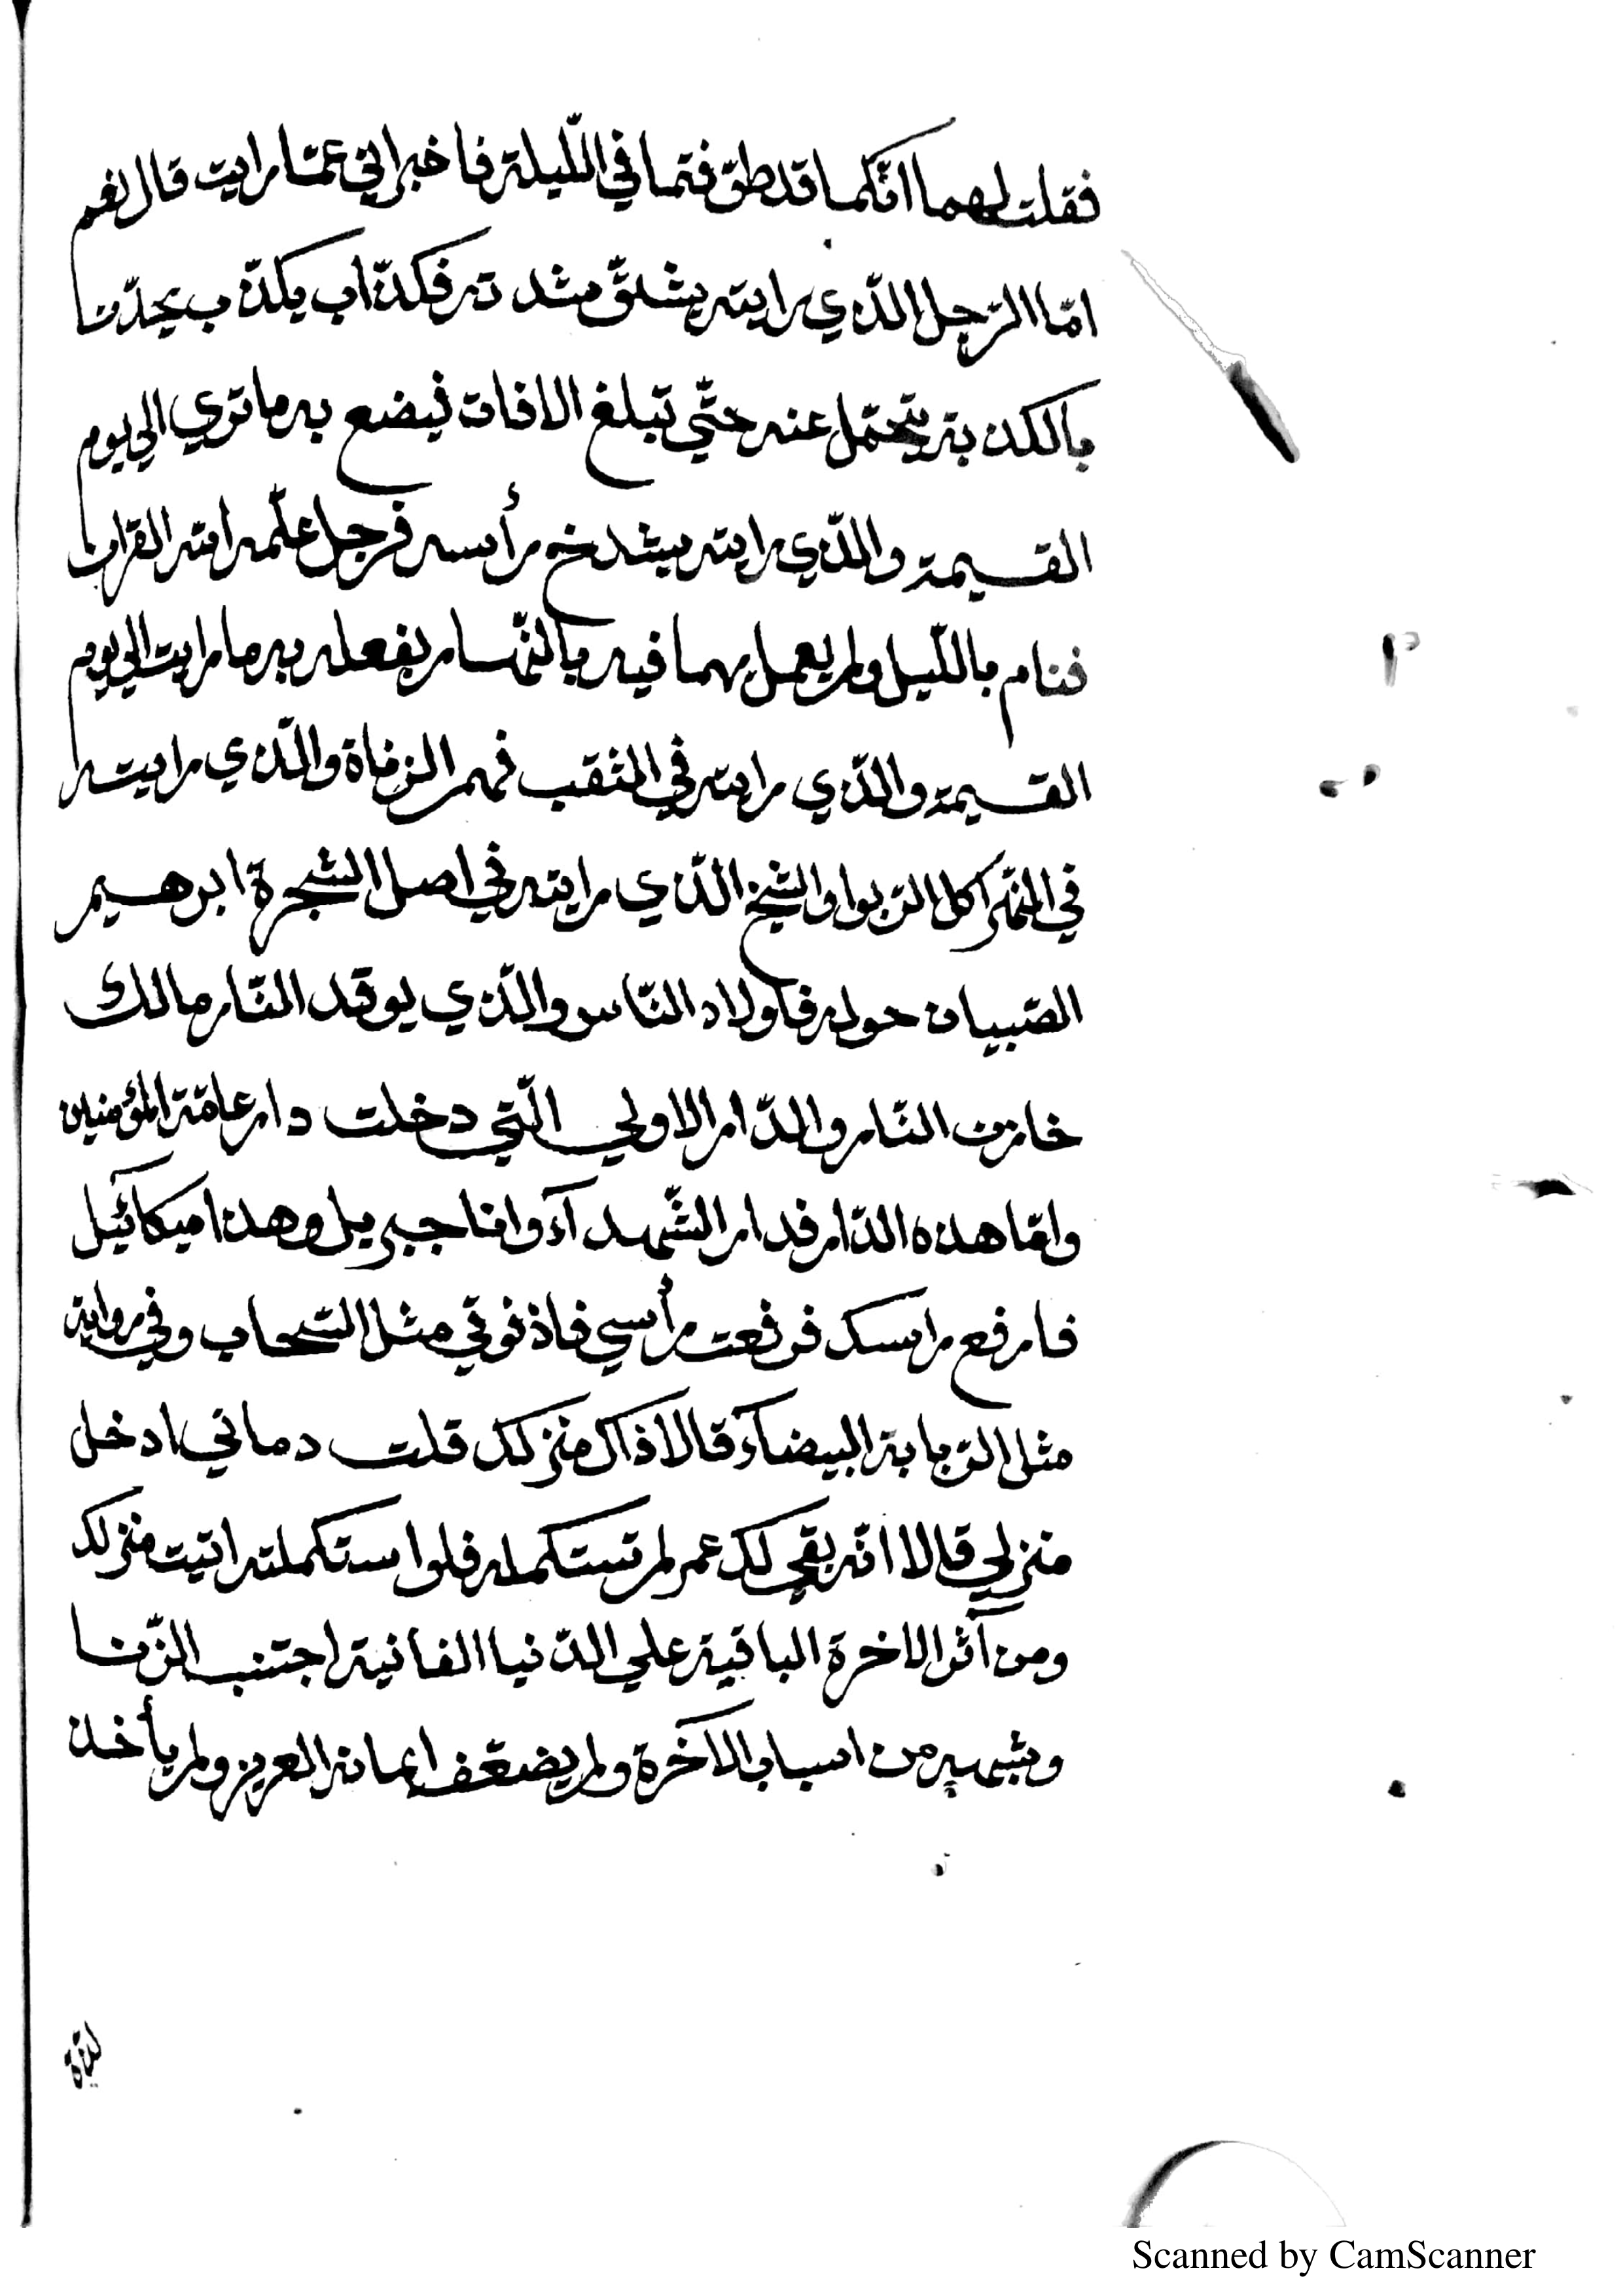 فقلت لهما انّكما قد طوّفتما في اللّيلة فاخبراني عمّا رايت قال نعم
امّا الرّجل الّذي رايته يشقّ شدته فكذّاب يكذّب يحدّث
بالكذبة يتحمّل عنه حتّي تبلغ الافاق فيضع به ما تري الي يوم
القيمة والّذي رايته يشدخ رأسه فرجل علّمه الله القران
فنام باللّيل ولم يعمل بهما فيه بالنّهار يفعل به ما رايت الي يوم
القيمة والّذي رايته في الثقب فهم الزناة والّذي رايته
في النّهر اكل الرّبوا والشيخ الّذي رايته في اصل الشّجرة ابرهيم
الصّبيان حوله فاولاد النّاس والّذي يوقد النّار مالك
خازن النّار والدّار الاولي الّتي دخلت دار عامّة المؤمنين
وامّا هذه الدّار فدار الشّهدآء وانا جبريل وهذا ميكائيل
فارفع راسك فرفعت رأسي فاذ فوقي مثل السّحاب وفي رواية
مثل الرّبابة البيضآء قالا ذاك منزلك قلت دعاني ادخل
منزلي قالا انّه بقي لك عمر لم تستكمله فلو استكملته اتيت منزلك
ومن آثر الاخرة الباقية علي الدّنيا الفانية اجتنب الزّنا
وشبهه من اسباب الآخرة ولم يضعّف ايمانه العزيز ولم يأخذ
Scanned by CamScanner